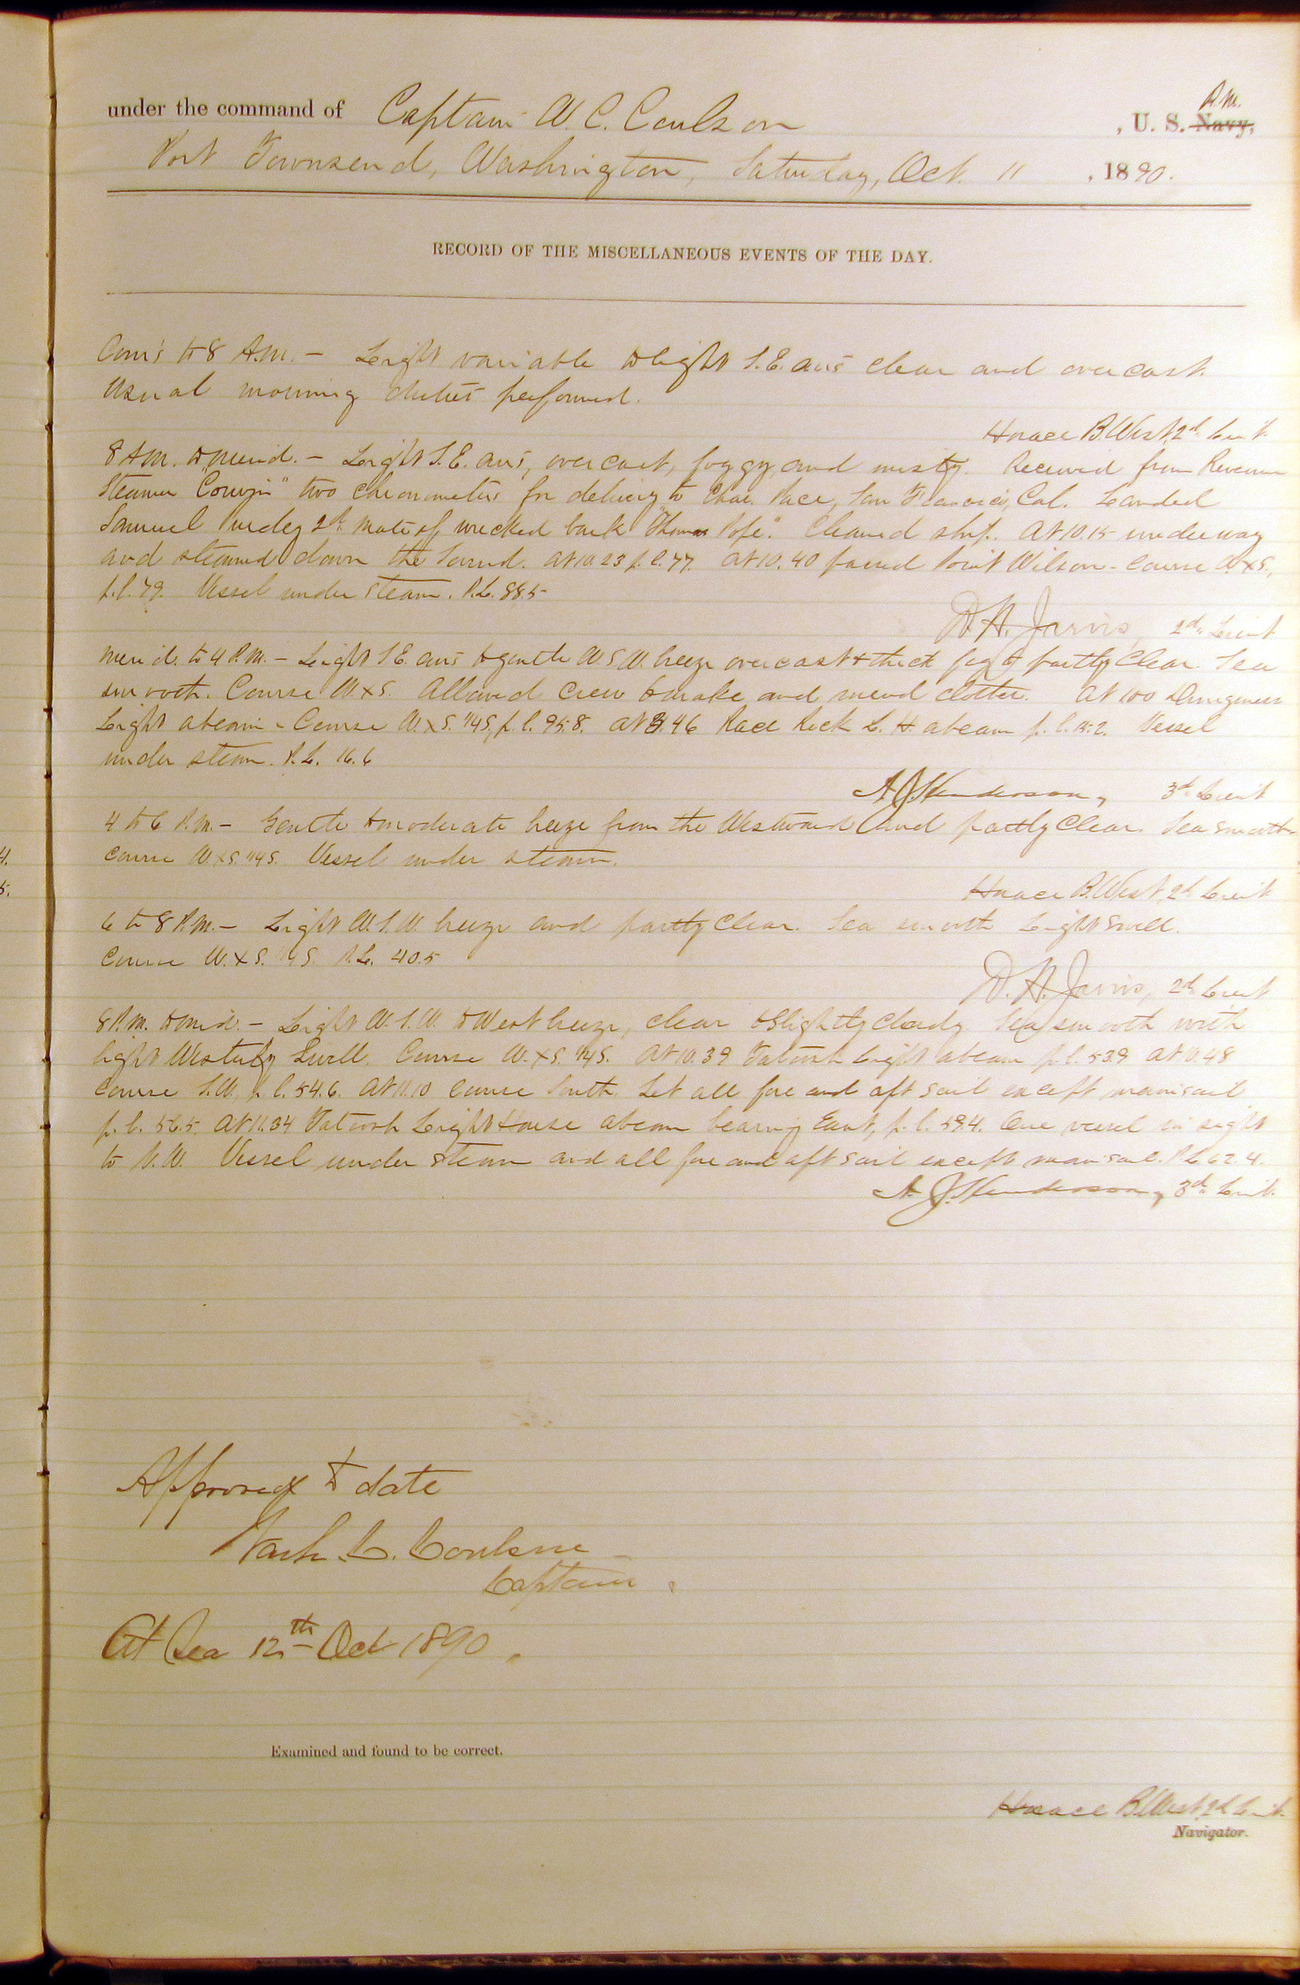 R.M.
under the command of Captain W. C. Coulson , U. S. Navy,
Port Townsend, Washington, Saturday, Oct. 11 , 1890.
RECORD OF THE MISCELLANEOUS EVENTS OF THE DAY.
Com's to 8 A.M. – Light variable to light S.E. airs clear and overcast.
Usual morning duties performed.
Horace B. West, 2d Lieut.
8 A.M. to merid. – Light S.E. airs, overcast, foggy, and misty. Received from Revenue
Steamer "Corwin" two chronometers for delivery to Chas. Pace, San Francisco, Cal. Landed
Samuel 2d mate of wrecked bark "Thomas Pope". Cleaned ship. At 10.15 underway
and steamed down the Sound. At 10.23 p.l. 77. At 10.40 passed Point Wilson – Course W.xS.,
p.l. 79. Vessel under steam. P.L. 88.5
D. H. Jarvis, 2d Lieut.
Merid. to 4 P.M. – Light S.E. airs to gentle W.S.W. breeze overcast & thick fog to partly clear. Sea
smooth. Course W.xS. Allowed crew to make and mend clothes. At 1.00 Dungeness
Light abeam – Course W.xS. 1/4S, p.l. 95.8. At 3.46 Race Rock L. H. abeam p.l. 15.2. Vessel
under steam. P.L. 16.6
A. J. Henderson, 3d Lieut.
4 to 6 P.M. – Gentle to moderate breeze from the Westward and partly clear. Sea smooth
course W.xS. 1/4S. Vessel under steam.
Horace B. West, 2d Lieut.
6 to 8 P.M. – Light W.S.W. breeze and partly clear. Sea smooth Light swell.
Course W.xS. 1/4S. P.L. 40.5
D. H. Jarvis, 2d Lieut.
8 P.M. to mid. – Light W.S.W. to West breeze, clear to slightly cloudy. Sea smooth with
light Westerly Swell. Course W.xS. 1/4S. At 10.39 Tatoosh Light abeam p.l. 53.9 At 10.48
course S.W., p.l. 54.6. At 11.10 course South. Set all fore and aft sail except mainsail
p.l. 56.5. At 11.34 Tatoosh Light House abeam bearing East, p.l. 59.4. One vessel in sight
to N.W. Vessel under steam and all fore and aft sail except mainsail. P.L. 62.4.
A. J. Henderson, 3d Lieut.
Approved to date
Wash. C. Coulson
Captain.
At Sea 12th Oct 1890.
Examined and found to be correct.
Horace B. West, 2d Lieut.
Navigator.